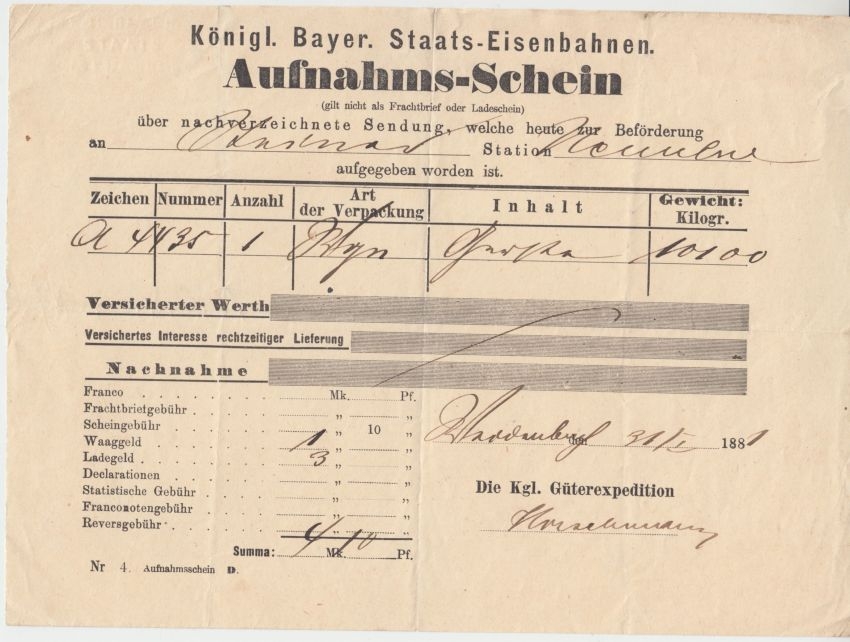 Königl. Bayer. Staats-Eisenbahnen.
Aufnahms-Schein
(gilt nicht als Frachtbrief oder Ladeschein)
über nachverzeichnete Sendung, welche heute zur Beförderung
an Station
aufgegeben worden ist.
Zeichen Nummer Anzahl Art der Verpackung Inhalt Gewicht: Kilogr.
A 4435 1 Wgn Gerste 10100
Versicherter Werth
Versichertes Interesse rechtzeitiger Lieferung
Nachnahme
Franco Mk. Pf.
Frachtbriefgebühr „ „
Scheingebühr „ 10 „
Waaggeld 1 „ „
Ladegeld 3 „ „
Declarationen „ „
Statistische Gebühr „ „
Franconotengebühr „ „
Reversgebühr „ „
Summa: 4 Mk. 10 Pf.
den 31/I 1881
Die Kgl. Güterexpedition
Nr 4. Aufnahmsschein D.